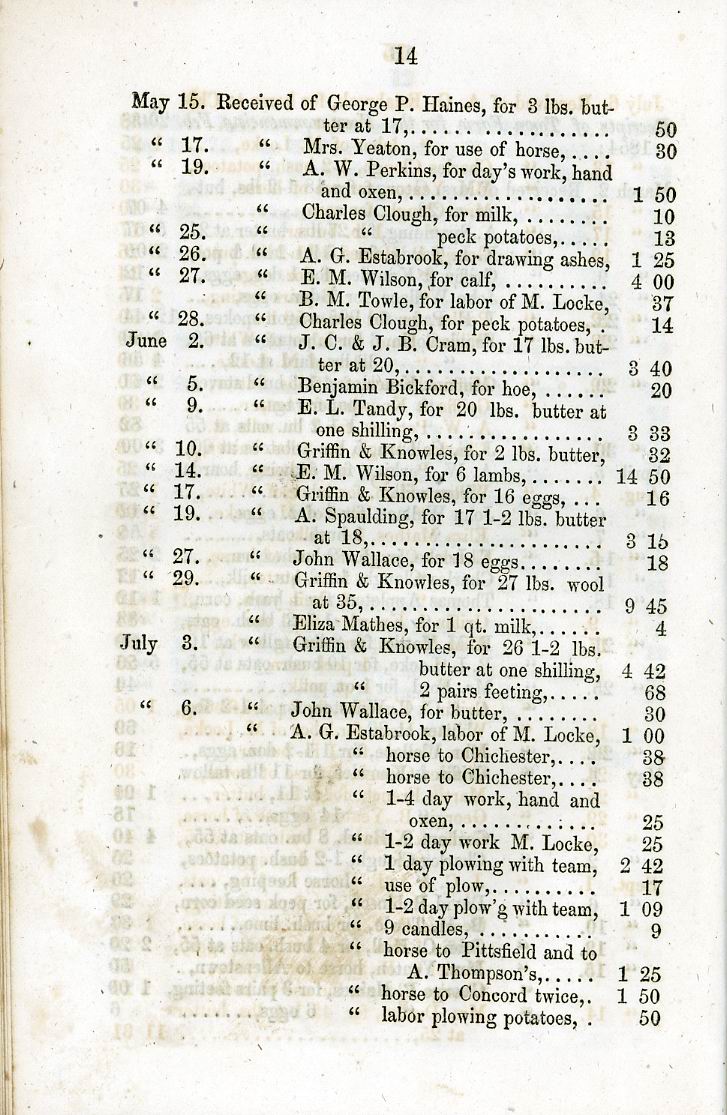 14
May 15. Received of George P. Haines, for 3 lbs. but-
ter at 17,.................... 50
“ 17. “ Mrs. Yeaton, for use of horse,.... 30
“ 19. “ A. W. Perkins, for day's work, hand
and oxen,.................... 1 50
“ Charles Clough, for milk,........ 10
“ 25. “ “ peck potatoes,..... 13
“ 26. “ A. G. Estabrook, for drawing ashes, 1 25
“ 27. “ E. M. Wilson, for calf,.......... 4 00
“ B. M. Towle, for labor of M. Locke, 37
“ 28. “ Charles Clough, for peck potatoes, . 14
June 2. “ J. C. & J. B. Cram, for 17 lbs. but-
ter at 20,.................... 3 40
“ 5. “ Benjamin Bickford, for hoe,...... 20
“ 9. “ E. L. Tandy, for 20 lbs. butter at
one shilling,.................. 3 33
“ 10. “ Griffin & Knowles, for 2 lbs. butter, 32
“ 14. “ E. M. Wilson, for 6 lambs,....... 14 50
“ 17. “ Griffin & Knowles, for 16 eggs, ... 16
“ 19. “ A. Spaulding, for 17 1-2 lbs. butter
at 18,....................... 3 15
“ 27. “ John Wallace, for 18 eggs........ 18
“ 29. “ Griffin & Knowles, for 27 lbs. wool
at 35,....................... 9 45
“ Eliza Mathes, for 1 qt. milk,...... 4
July 3. “ Griffin & Knowles, for 26 1-2 lbs.
butter at one shilling, 4 42
“ 2 pairs feeting,..... 68
“ 6. “ John Wallace, for butter, ........ 30
“ A. G. Estabrook, labor of M. Locke, 1 00
“ horse to Chichester,.... 38
“ horse to Chichester,.... 38
“ 1-4 day work, hand and
oxen,.............. 25
“ 1-2 day work M. Locke, 25
“ 1 day plowing with team, 2 42
“ use of plow,.......... 17
“ 1-2 day plow'g with team, 1 09
“ 9 candles, ........... 9
“ horse to Pittsfield and to
A. Thompson's,..... 1 25
“ horse to Concord twice,. 1 50
“ labor plowing potatoes, . 50